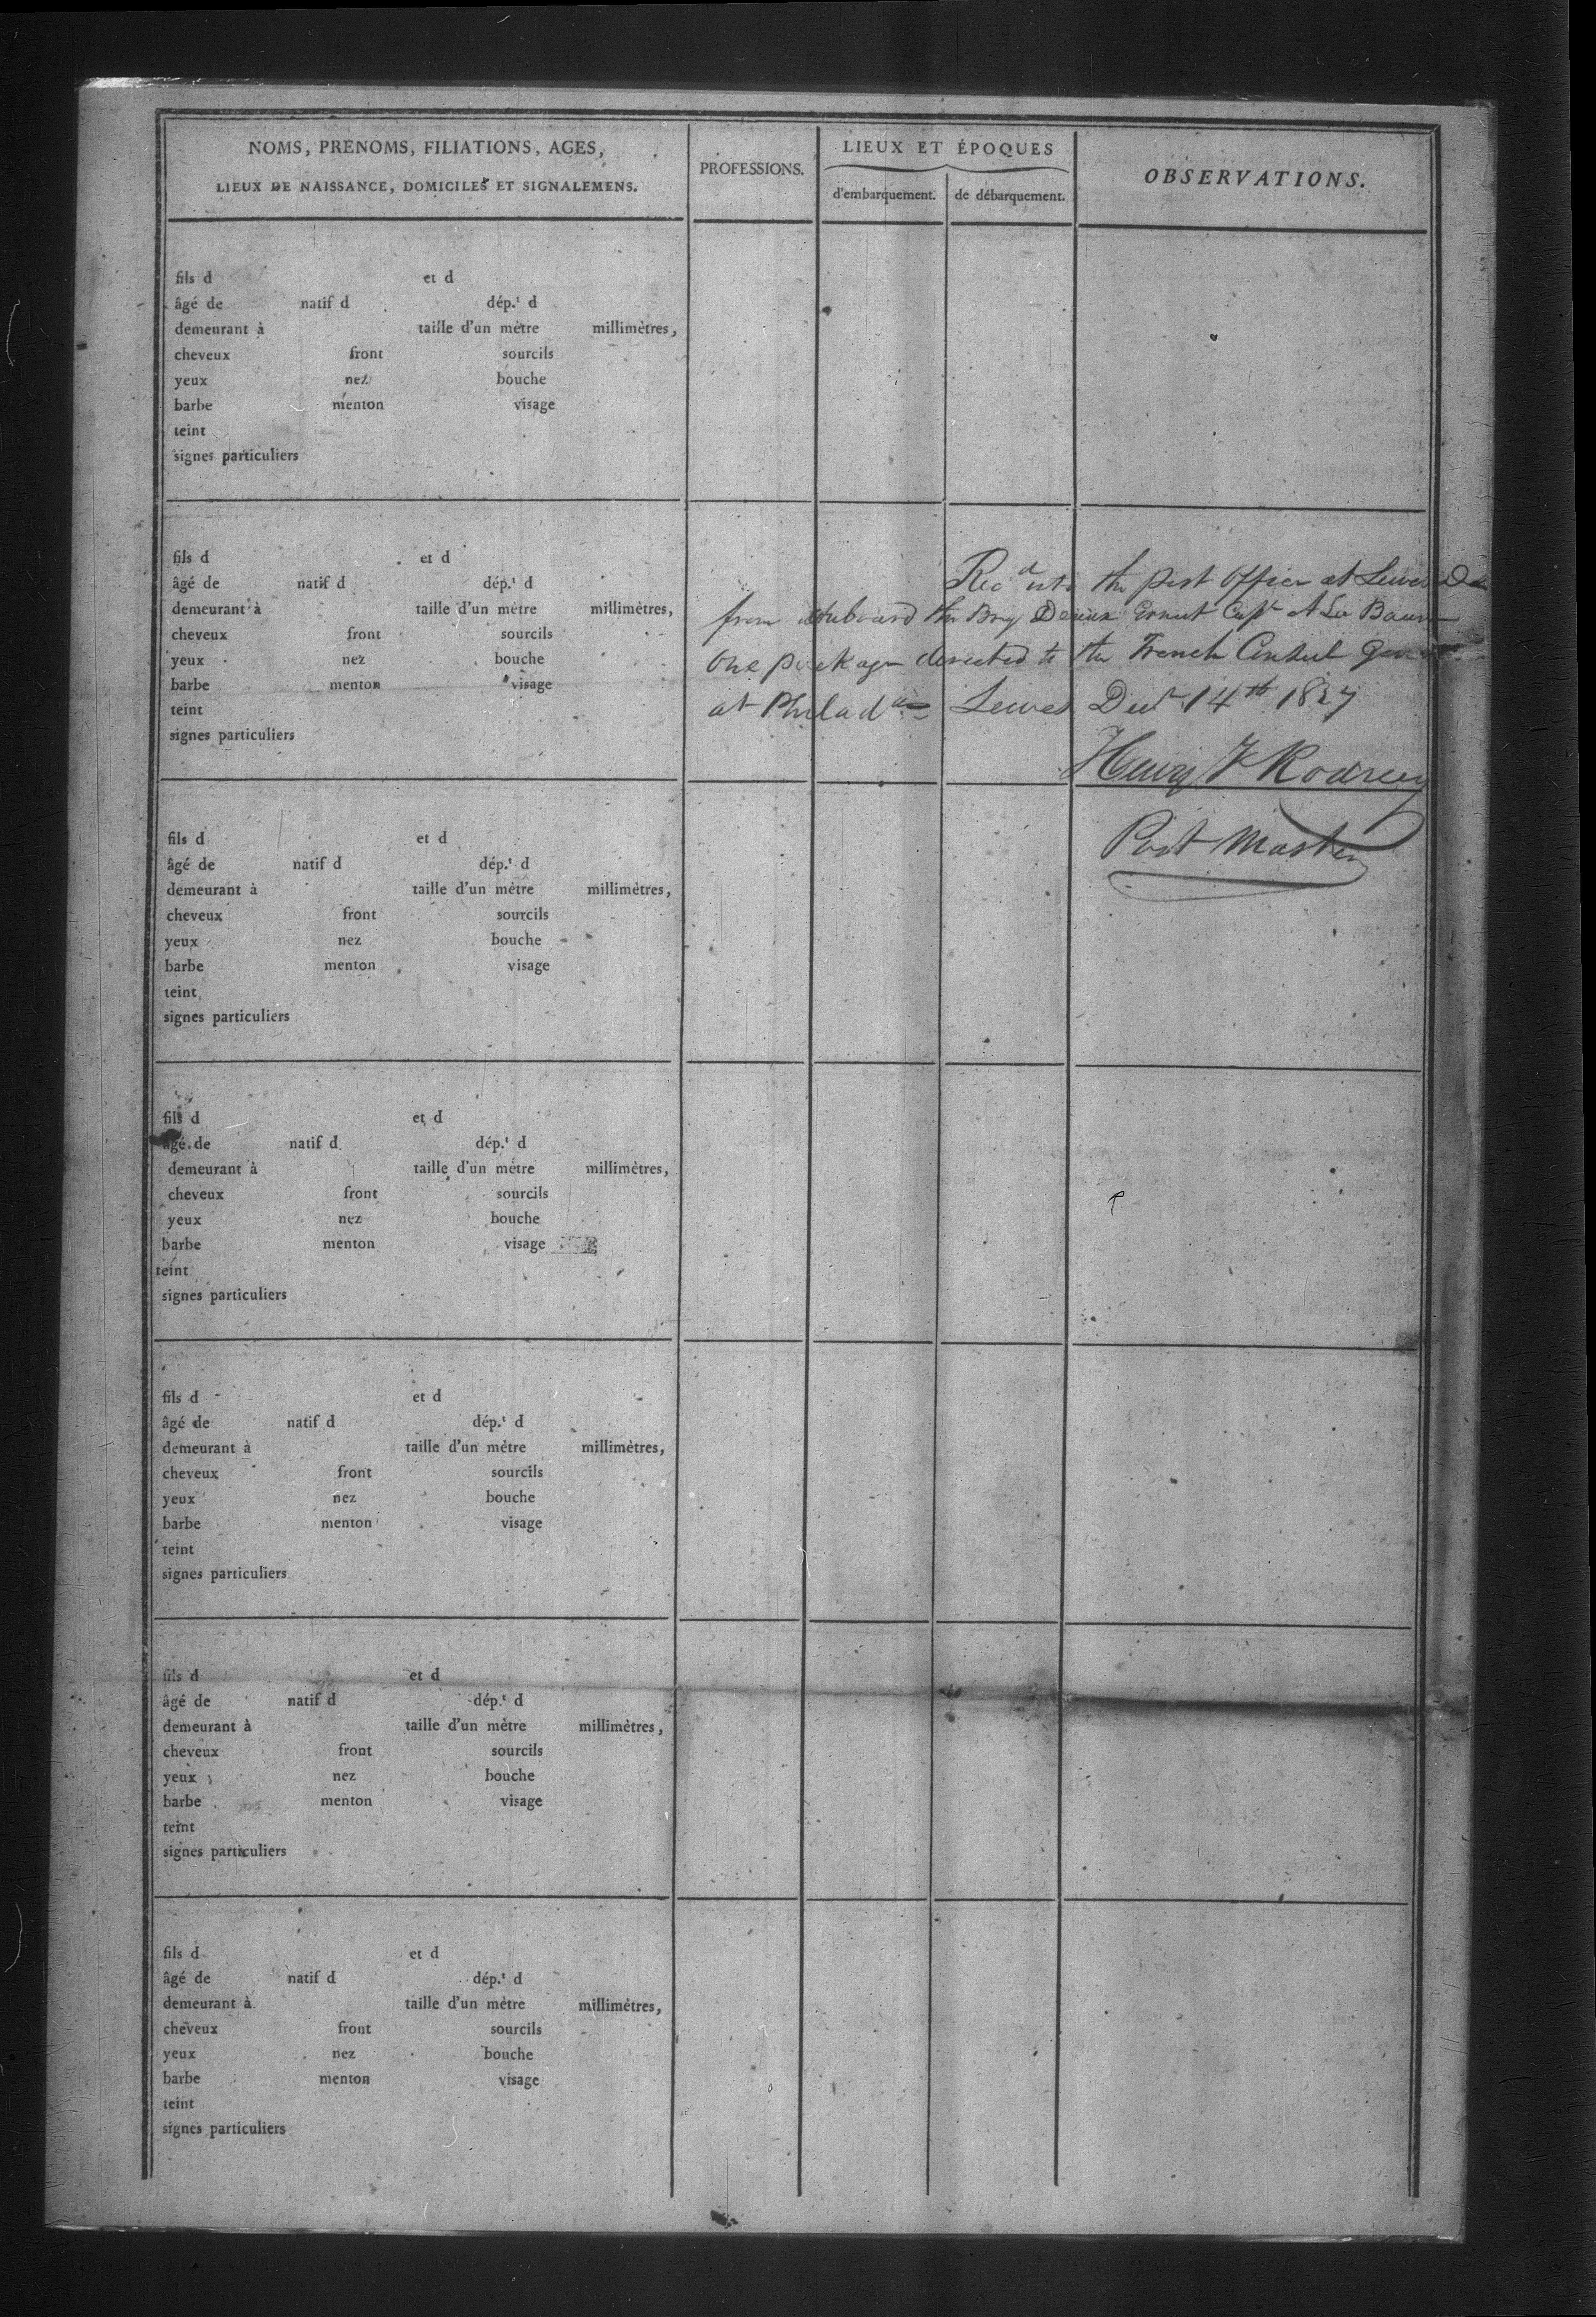 NOMS, PRÉNOMS, FILIATIONS, AGES,
LIEUX DE NAISSANCE, DOMICILES ET SIGNALEMENS.
PROFESSIONS.
LIEUX ET ÉPOQUES
d'embarquement.
de débarquement.
OBSERVATIONS.
fils d et d
âgé de natif d dép.t d
demeurant à taille d'un mètre millimètres,
cheveux front sourcils
yeux nez bouche
barbe menton visage
teint
signes particuliers
fils d et d
âgé de natif d dép.t d
demeurant à taille d'un mètre millimètres,
cheveux front sourcils
yeux nez bouche
barbe menton visage
teint
signes particuliers
Recd into the post Office at Lewes De
from onboard the Brig Ernest Capt A Le
One package directed to the French Consul Gen
at Philada Lewes Decr 14th 1827
Henry F Rodney
Post Master
fils d et d
âgé de natif d dép.t d
demeurant à taille d'un mètre millimètres,
cheveux front sourcils
yeux nez bouche
barbe menton visage
teint
signes particuliers
fils d et d
âgé de natif d dép.t d
demeurant à taille d'un mètre millimètres,
cheveux front sourcils
yeux nez bouche
barbe menton visage
teint
signes particuliers
fils d et d
âgé de natif d dép.t d
demeurant à taille d'un mètre millimètres,
cheveux front sourcils
yeux nez bouche
barbe menton visage
teint
signes particuliers
fils d et d
âgé de natif d dép.t d
demeurant à taille d'un mètre millimètres,
cheveux front sourcils
yeux nez bouche
barbe menton visage
teint
signes particuliers
fils d et d
âgé de natif d dép.t d
demeurant à taille d'un mètre millimètres,
cheveux front sourcils
yeux nez bouche
barbe menton visage
teint
signes particuliers